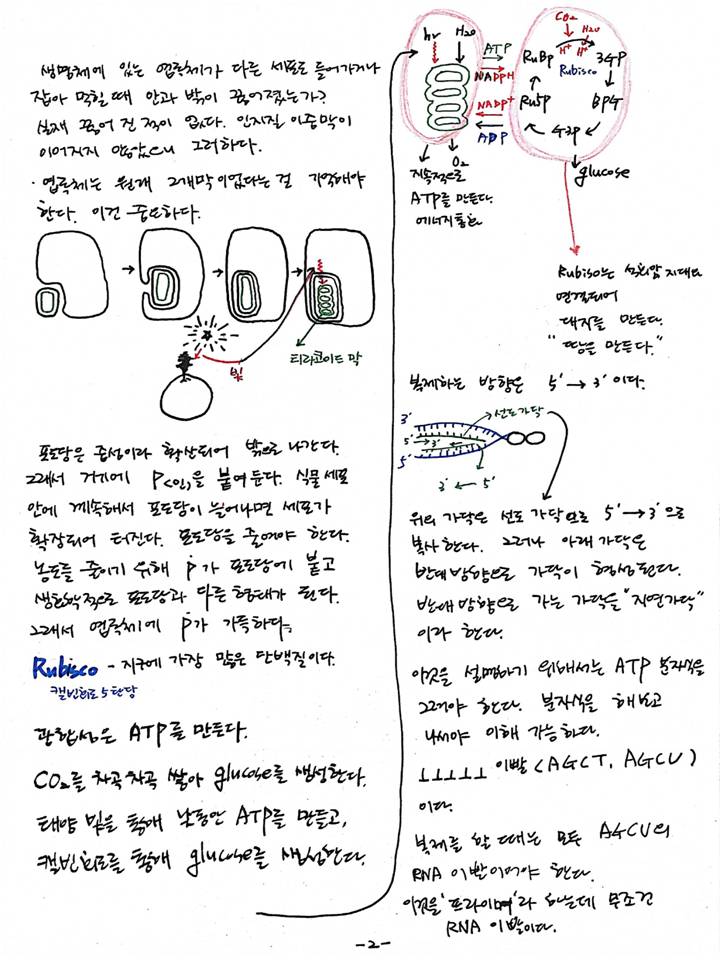 생명체에 있는 엽록체가 다른 세포로 들어가거나
잡아 먹힐 때 안과 밖이 끊어졌는가?
실재 끊어 진 적이 없다. 인지질 이중막이
이어지지 않았으니 그러하다.
· 엽록체는 원래 2개막이었다는 걸 기억해야
한다. 이건 중요하다.
빛
티라코이드 막
포도당은 중성이라 확산되어 밖으로 나간다.
그래서 거기에 P<인>을 붙여둔다. 식물 세포
안에 계속해서 포도당이 늘어나면 세포가
확장되어 터진다. 포도당을 줄여야 한다.
농도를 줄이기 위해 P가 포도당에 붙고
생화학적으로 포도당과 다른 형태가 된다.
그래서 엽록체에 P가 가득하다.
Rubisco - 지구에 가장 많은 단백질이다.
캘빈회로 5탄당
광합성은 ATP를 만든다.
CO₂를 차곡차곡 쌓아 glucose를 생성한다.
태양 빛을 통해 낮동안 ATP를 만들고,
캘빈회로를 통해 glucose를 생성한다.
hν H₂O
ATP
NADPH
NADP⁺
ADP
O₂
지속적으로
ATP를 만든다.
CO₂
H₂O
H⁺ H⁺
RuBp
3GP
Rubisco
Ru5P
BPG
G3P
glucose
Rubisco는 석회암 지대와
연결되어
대지를 만든다.
"땅을 만든다."
복제하는 방향은 5' → 3' 이다.
선도가닥
3'
5' → 3' ←
5'
3' ← 5'
위의 가닥은 선도 가닥으로 5' → 3' 으로
복사한다. 그러나 아래 가닥은
반대 방향으로 가닥이 형성된다.
반대 방향으로 가는 가닥을 "지연가닥"
이라 한다.
이것을 설명하기 위해서는 ATP 분자식을
그려야 한다. 분자식을 해보고
나서야 이해 가능하다.
⊥⊥⊥⊥⊥ 이빨 (AGCT, AGCU)
이다.
복제를 할 때는 모두 AGCU의
RNA 이빨이어야 한다.
이것을 '프라이머'라 하는데 무조건
RNA 이빨이다.
-2-